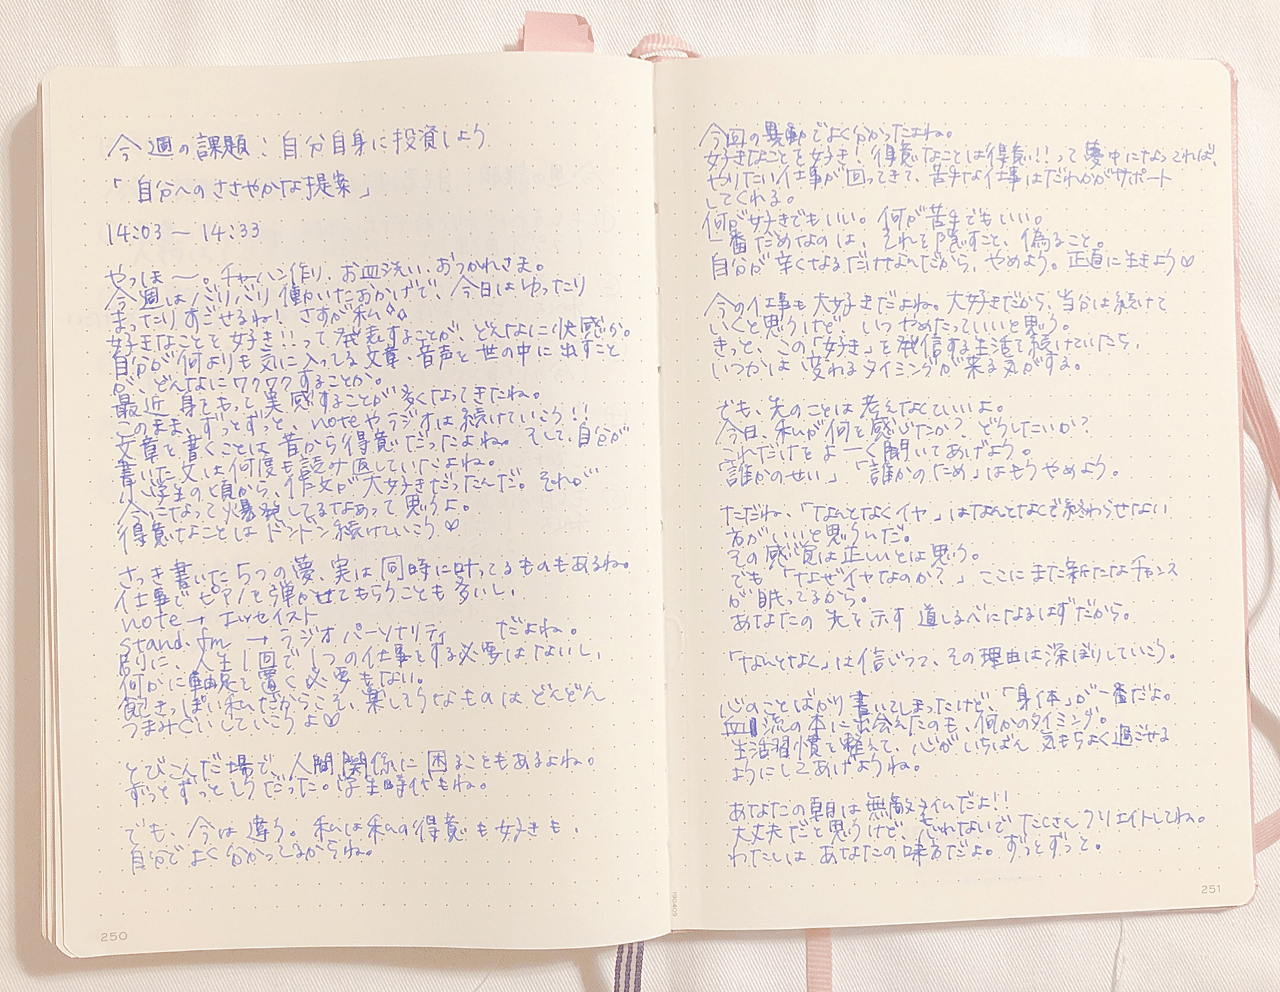 今週の課題：自分自身に投資しよう
「自分へのささやかな提案」
14:03〜14:33
やっほ〜。チャーハン作り、お皿洗い、おつかれさま。
今週はバリバリ働いたおかげで、今日はゆったり
まったりすごせるね！さすが私
好きなことを好き！！って発表することが、どんなに快感か。
自分が何よりも気に入ってる文章、音声を世の中に出すこと
が、どんなにワクワクすることか。
最近、身をもって実感することが多くなってきたね。
このまま、ずっとずっと、noteやラジオは続けていこう！！
文章を書くことは昔から得意だったよね。そして、自分が
書いた文は何度も読み返していたよね。
小学生の頃から、作文が大好きだったんだ。それが
今になって爆発してるなあって思うよ。
得意なことはドンドン続けていこう♡
さっき書いた5つの夢、実は同時に叶ってるものもあるね。
仕事でピアノを弾かせてもらうことも多いし、
note→エッセイスト
stand.fm →ラジオパーソナリティ だよね。
別に、人生1回で1つの仕事をする必要はないし、
何かに軸足を置く必要もない。
飽きっぽい私だからこそ、楽しそうなものはどんどん
つまみぐいしていこうよ♡
とびこんだ場で、人間関係に困ることもあるよね。
ずっとずっとそうだった。学生時代もね。
でも、今は違う。私は私の得意も好きも、
自分でよく分かってるからね。
250
今回の異動でよく分かったよね。
好きなことを好き！得意なことは得意！！って夢中になってれば、
やりたい仕事が回ってきて、苦手な仕事はだれかがサポート
してくれる。
何が好きでもいい。何が苦手でもいい。
一番だめなのは、それを隠すこと、偽ること。
自分が辛くなるだけなんだから、やめよう。正直に生きよう♡
今の仕事も大好きだよね。大好きだから、当分は続けて
いくと思うけど、いつやめたっていいと思う。
きっと、この「好き」を発信する生活を続けていたら、
いつかは変わるタイミングが来る気がする。
でも、先のことは考えなくていいよ。
今日、私が何を感じたか？どうしたいか？
これだけをよーく聞いてあげよう。
「誰かのせい」「誰かのため」はもうやめよう。
ただね、「なんとなくイヤ」はなんとなくで終わらせない
方がいいと思うんだ。
その感覚は正しいとは思う。
でも「なぜイヤなのか？」ここにまた新たなチャンス
が眠ってるから。
あなたの先を示す道しるべになるはずだから。
「なんとなく」は信じつつ、その理由は深ぼりしていこう。
心のことばかり書いてしまったけど、「身体」が一番だよ。
血流の本に出会えたのも、何かのタイミング。
生活習慣を整えて、心がいちばん気もちよく過ごせる
ようにしてあげようね。
あなたの朝は無敵タイムだよ！！
大丈夫だと思うけど、忘れないでたくさんクリエイトしてね。
わたしはあなたの味方だよ。ずっとずっと。
251
190409